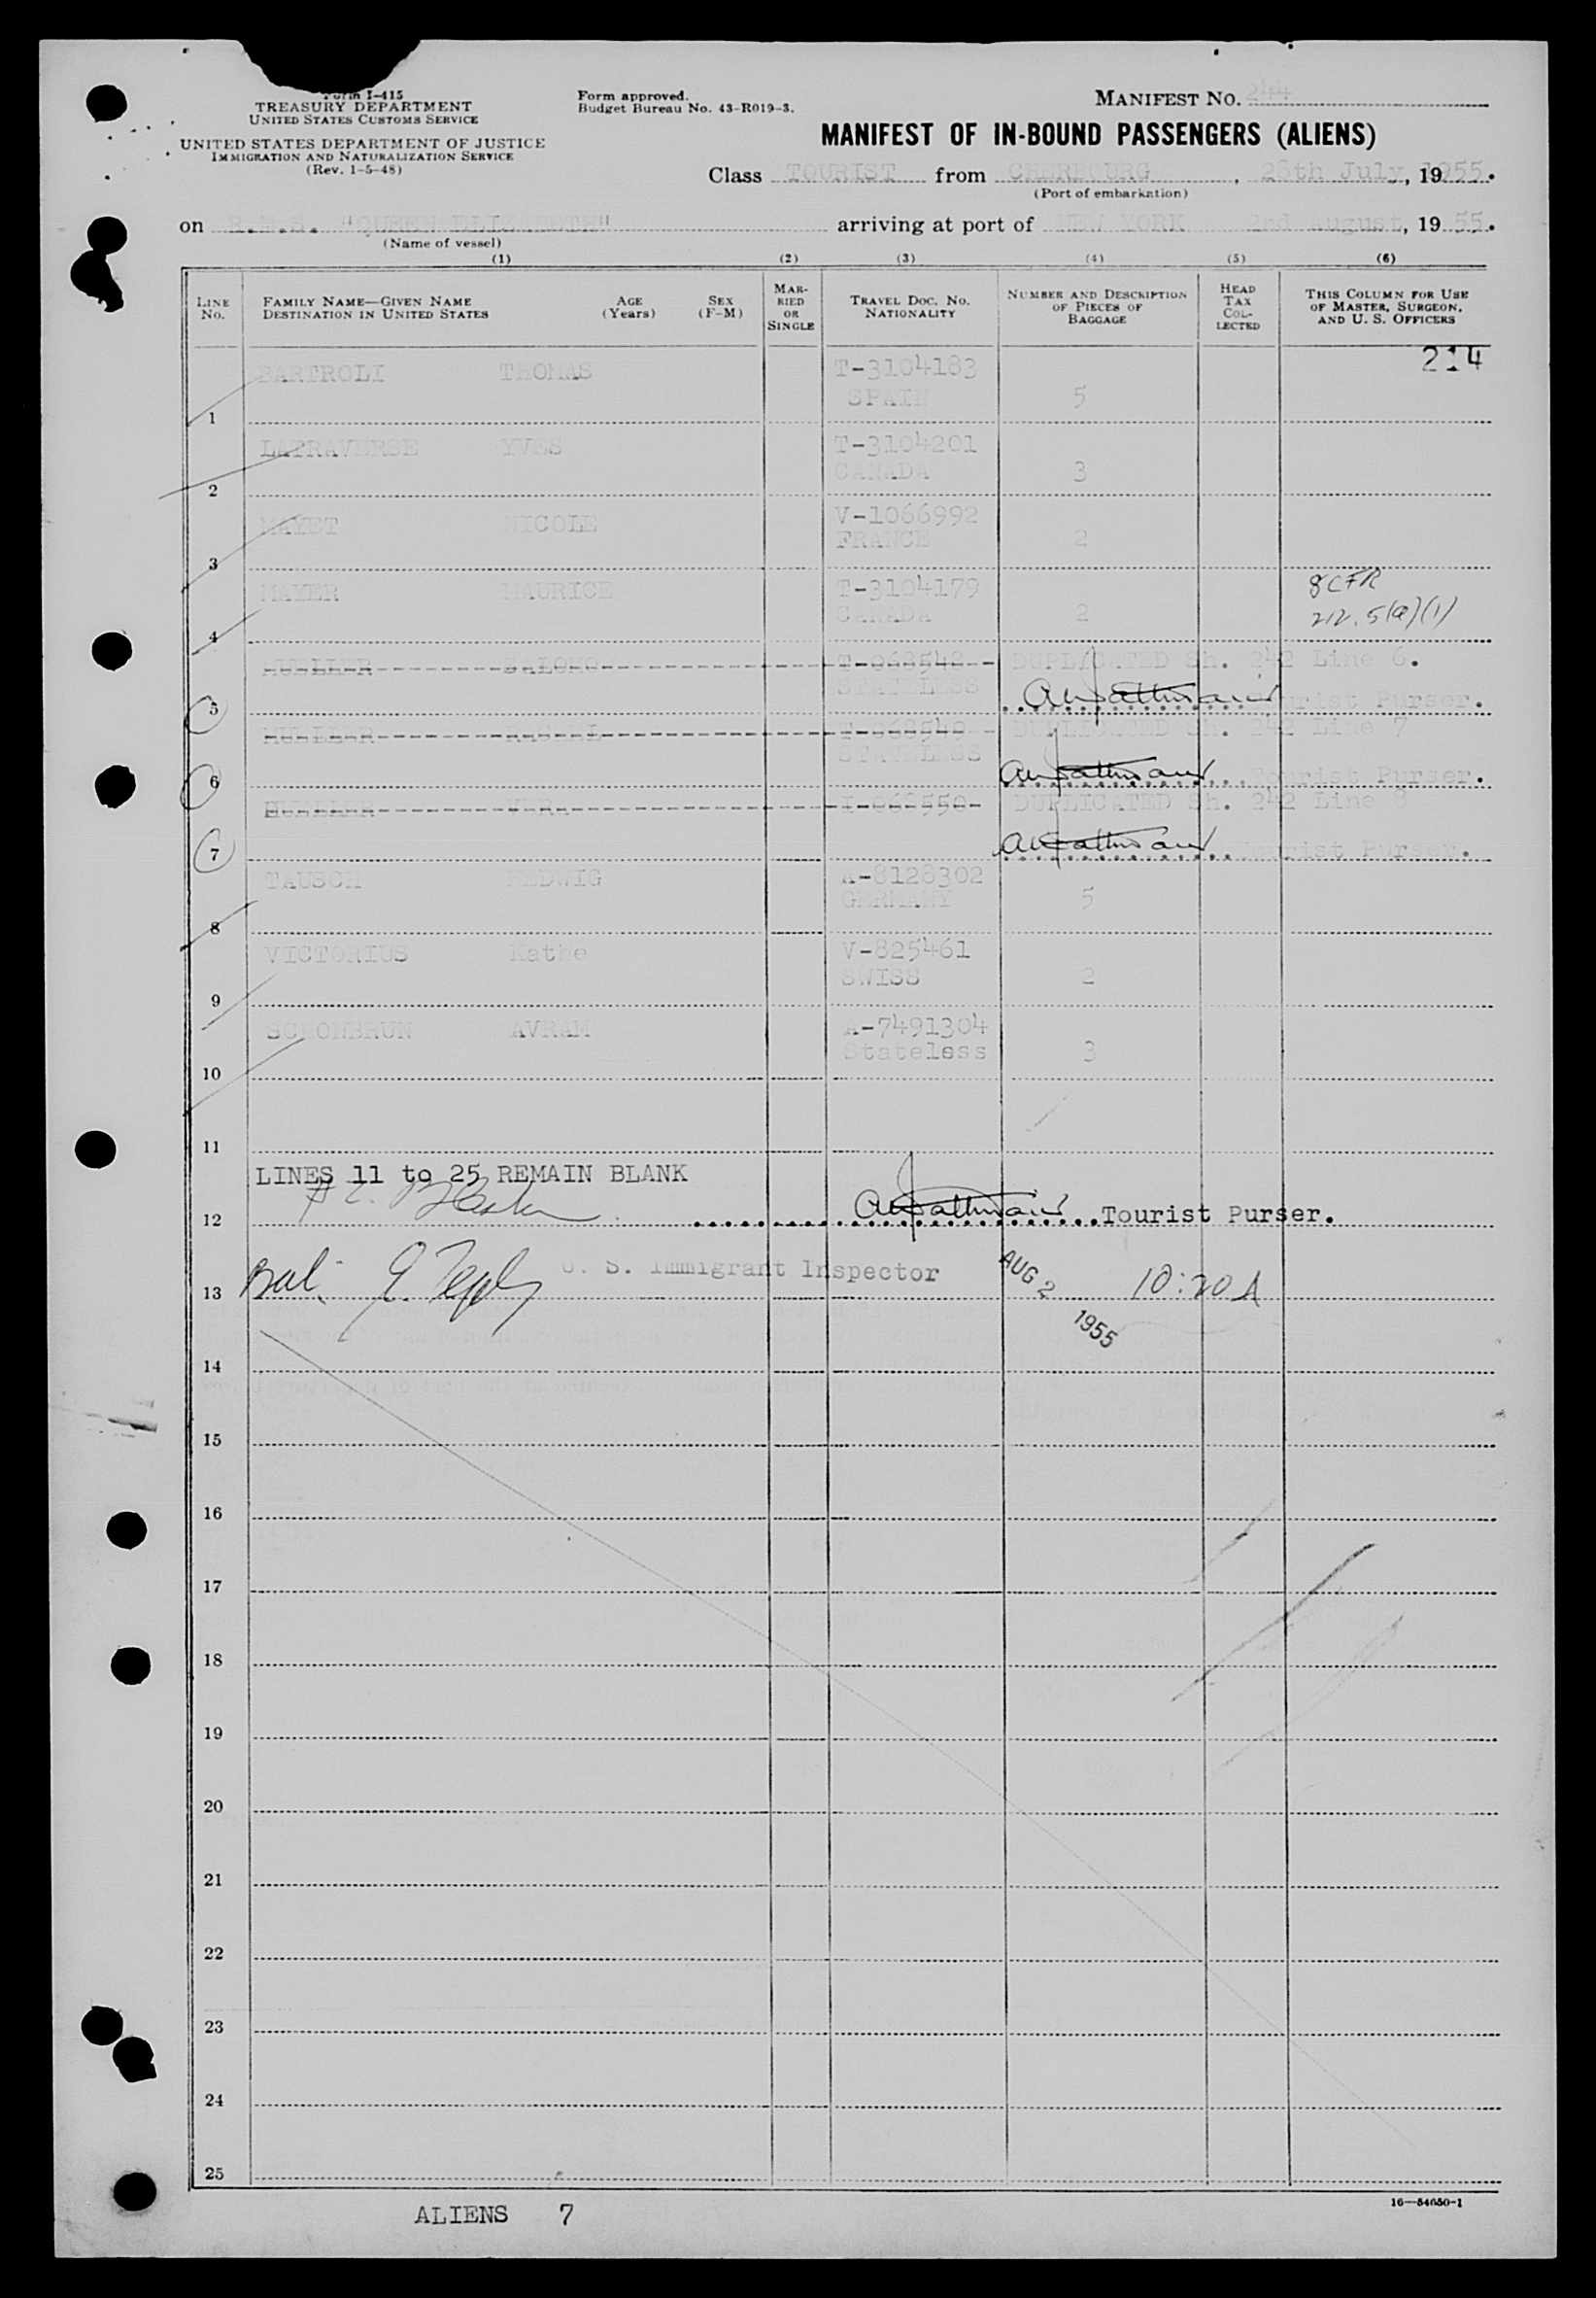 Form I-415
TREASURY DEPARTMENT
UNITED STATES CUSTOMS SERVICE
UNITED STATES DEPARTMENT OF JUSTICE
IMMIGRATION AND NATURALIZATION SERVICE
(Rev. 1-5-48)
Form approved.
Budget Bureau No. 43-R019-3.
MANIFEST NO. 244
MANIFEST OF IN-BOUND PASSENGERS (ALIENS)
Class TOURIST from CHERBOURG, 28th July, 1955.
(Port of embarkation)
on R.M.S. "QUEEN ELIZABETH" arriving at port of NEW YORK 2nd August, 1955.
(Name of vessel)
(1) (2) (3) (4) (5) (6)
LINE NO.
FAMILY NAME—GIVEN NAME
DESTINATION IN UNITED STATES
AGE (Years)
SEX (F-M)
MARRIED OR SINGLE
TRAVEL DOC. NO.
NATIONALITY
NUMBER AND DESCRIPTION OF PIECES OF BAGGAGE
HEAD TAX COLLECTED
THIS COLUMN FOR USE OF MASTER, SURGEON, AND U. S. OFFICERS
214
BARTROLI THOMAS T-3104183
1 SPAIN 5
LAFRAVERSE YVES T-3104201
2 CANADA 3
MAYET NICOLE V-1066992
3 FRANCE 2
MAYER MAURICE T-3104179 8CFR
4 CANADA 2 212.5(a)(1)
DUPLICATED Sh. 242 Line 6.
5 STATELESS Tourist Purser.
DUPLICATED Sh. 242 Line 7
6 STATELESS Tourist Purser.
DUPLICATED Sh. 242 Line 8
7 Tourist Purser.
TAUSCH HEDWIG A-8128302
8 GERMANY 5
VICTORIUS Kathe V-825461
9 SWISS 2
SCHONBRUN AVRAM A-7491304
10 Stateless 3
11
LINES 11 to 25 REMAIN BLANK
12 Tourist Purser.
13 U. S. Immigrant Inspector AUG 2 1955 10:20 A
14
15
16
17
18
19
20
21
22
23
24
25
ALIENS 7
16—54650-1